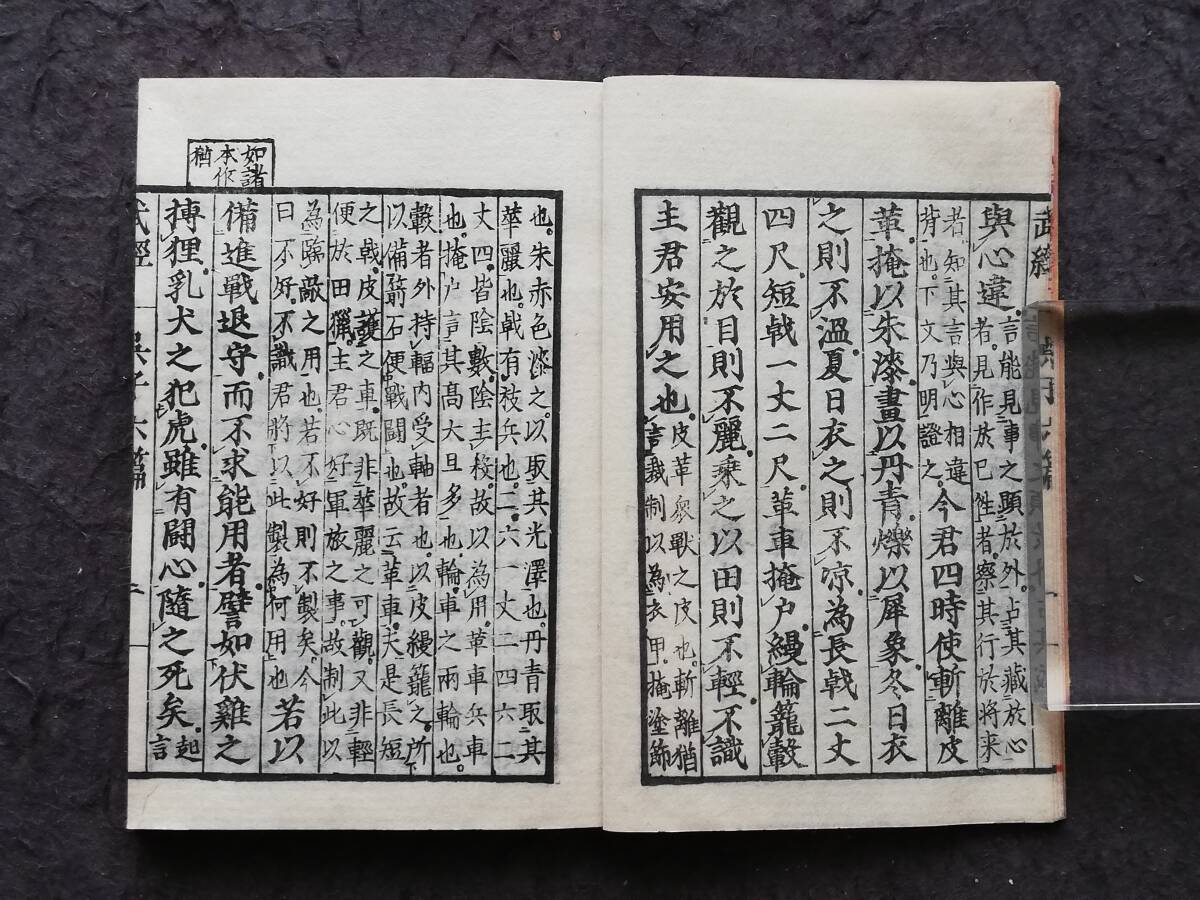 與心違言能見事之顯於外占其藏於心
者見作於已徃者察其行於將来
者知其言與心相違
背也下文乃明證之今君四時使斬離皮
革掩以朱漆畫以丹青爍以犀象冬日衣
之則不溫夏日衣之則不凉為長戟二丈
四尺短戟一丈二尺革車掩户縵輪籠轂
觀之於目則不麗乗之以田則不輕不識
主君安用之也皮革衆獸之皮也斬離猶
言裁制以為衣甲掩塗飾
也朱赤色漆之以取其光澤也丹青取其
華麗也戟有枝兵也二六一丈二四六二
丈四皆陰數陰主殺故以為用革車兵車
也掩户言其髙大且多也輪車之兩輪也
轂者外持輻内受軸者也以皮縵籠之所
以備箭石便戰鬪也故云革車夫是長短
之戟皮護之車既非華麗之可觀又非輕
便於田獵主君心好軍旅之事故制此以
為臨敵之用也若不好則不製矣今
曰不好不識君將以此製為何用也若以
備進戰退守而不求能用者譬如伏雞之
搏狸乳犬之犯虎雖有闘心隨之死矣起
言
如諸
本作
猶